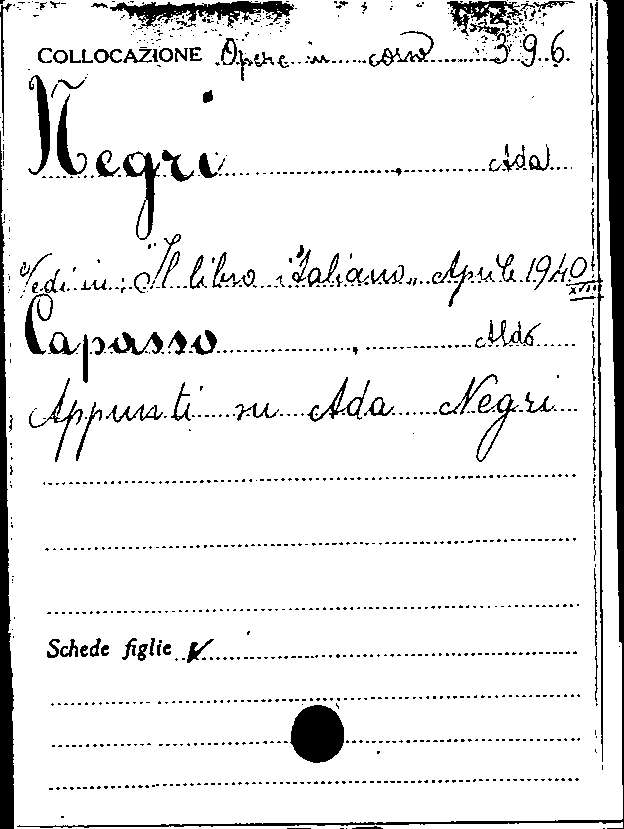 COLLOCAZIONE Opere in corso 396
Negri, Ada
Vedi in: "Il libro italiano„ Aprile 1940 XVIII
Capasso, Aldo
Appunti su Ada Negri
Schede figlie V